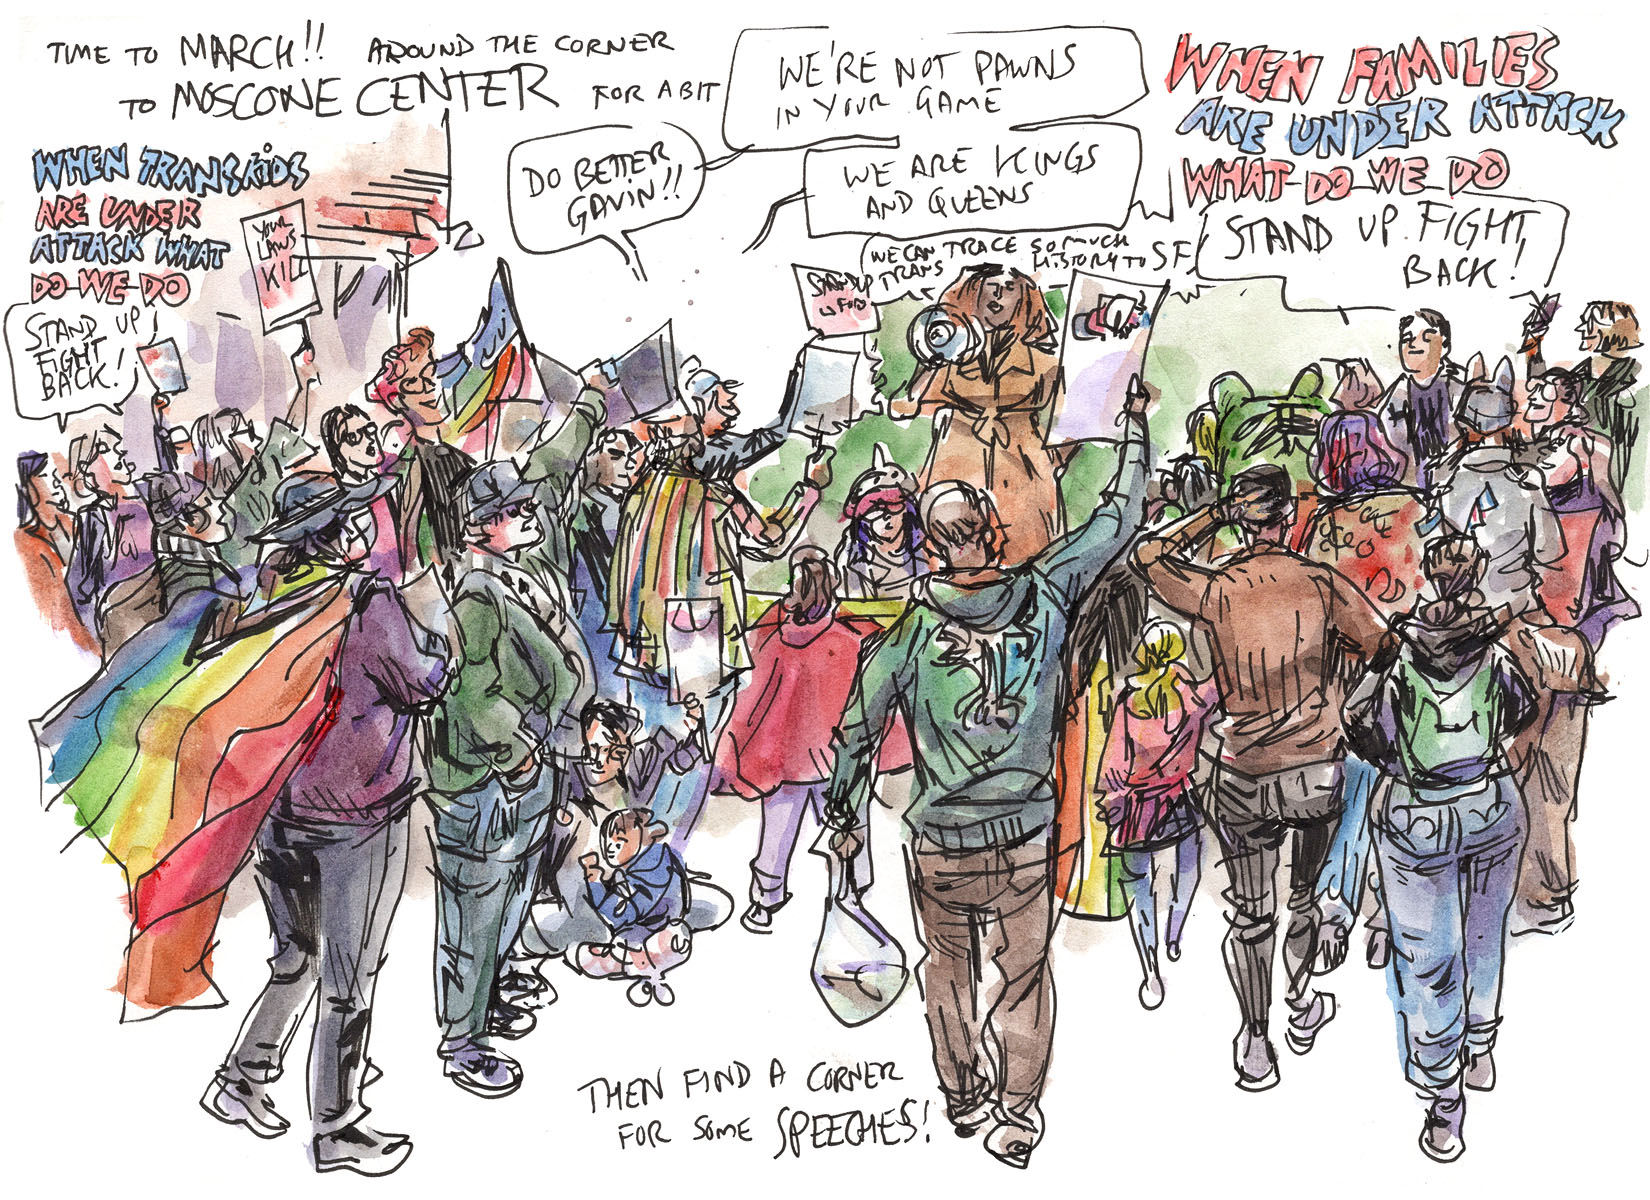 TIME TO MARCH!! AROUND THE CORNER
TO MOSCONE CENTER FOR A BIT
WHEN TRANS KIDS
ARE UNDER
ATTACK WHAT
DO WE DO
STAND UP
FIGHT
BACK!
YOUR
LAWS
KILL
DO BETTER
GAVIN!!
WE'RE NOT PAWNS
IN YOUR GAME
WE ARE KINGS
AND QUEENS
WE CAN TRACE SO MUCH
TRANS HISTORY TO SF
STAND UP
WHEN FAMILIES
ARE UNDER ATTACK
WHAT DO WE DO
STAND UP FIGHT
BACK!
THEN FIND A CORNER
FOR SOME SPEECHES!